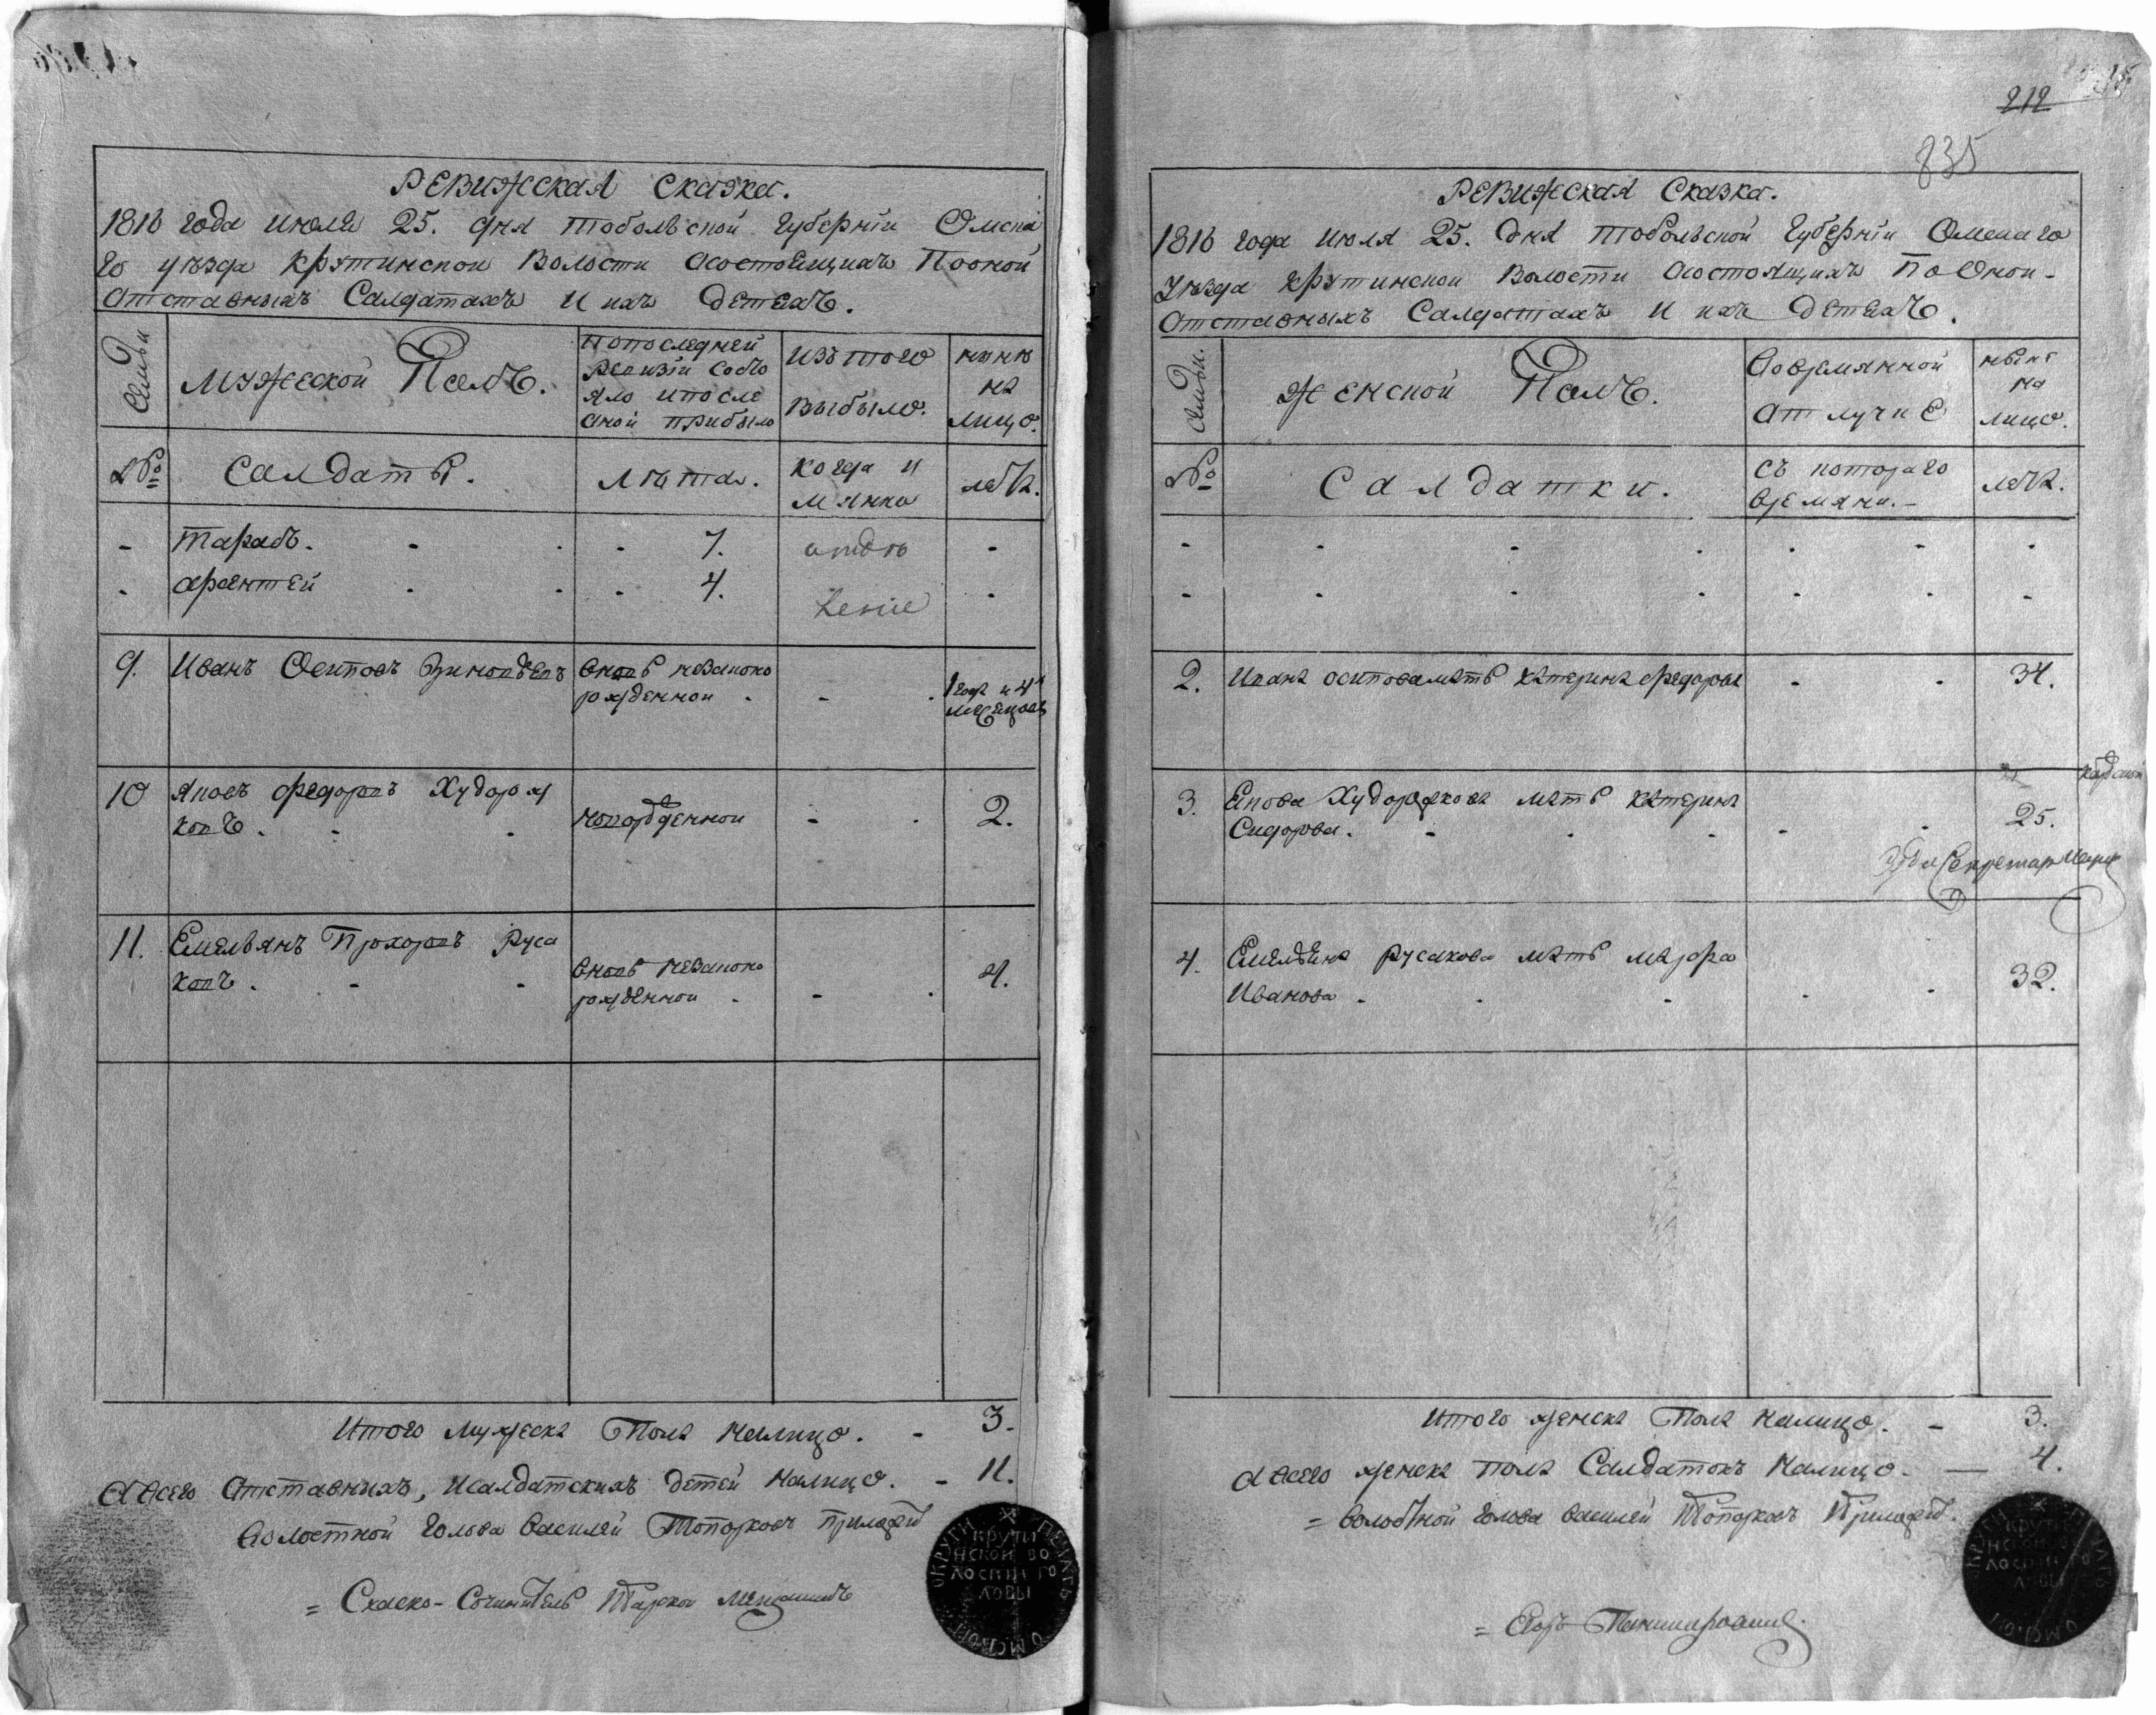 РЕВИЖСКАЯ Сказка.
1816 года июля 25. дня тобольской губернiи Омска
го уезда крутинской Волости Осостоящихъ Поономъ
Отставныхъ Салдатахъ И ихъ детехъ.
Семьи
Мужеской Полъ.
Попоследней
Ревизiи Состо
яло ипосле
оной прибыло
изътого
выбыло.
ныне
на
лицо.
№
Салдаты.
Лѣта.
когда и
мянно
лѣта.
тарасъ. 7. отдѣ
арентей 4. ленiе
9. Иванъ Осиповъ Зиновьевъ вновь незаконо
рожденной
1 годъ и 4
месецовъ
10 Яковъ федоровъ Худорож
ковъ.
новорожденной 2.
11. Емельянъ Прохоровъ Руса
ковъ.
вновь незаконо
рожденной 4.
Итого мужеска Пола налицо. 3.
А всего Отставныхъ, исалдатскихъ детей налицо. 11.
Волостной голова василей Топорковъ приложилъ
= Скаско-Сочинитель Тарской Мещанинъ
КРУТИ
НСКОЙ ВО
ЛОСТНИ ГО
ЛОВЫ
212
835
РЕВИЖСКАЯ Сказка.
1816 года Июля 25. дня тобольской губернiи Омскаго
Уезда крутинской Волости Осостоящихъ По Оной
Отставныхъ Салдатахъ И ихъ детехъ.
Семьи.
женской Полъ.
Вовремянной
отлучкѣ
ныне
на
лицо.
№
Салдатки.
съ котораго
времяни.
лѣта.
2. Ивана осипова мать катерина федорова 34.
3. Якова Худорожкова мать катерина
Сидорова. 25.
Секретарь
4. Емельяна русакова мать марфа
Иванова 32.
Итого женска Пола налицо. 3.
А всего женска пола Салдатокъ налицо. 4.
= Волостной голова василей Топорковъ Приложилъ.